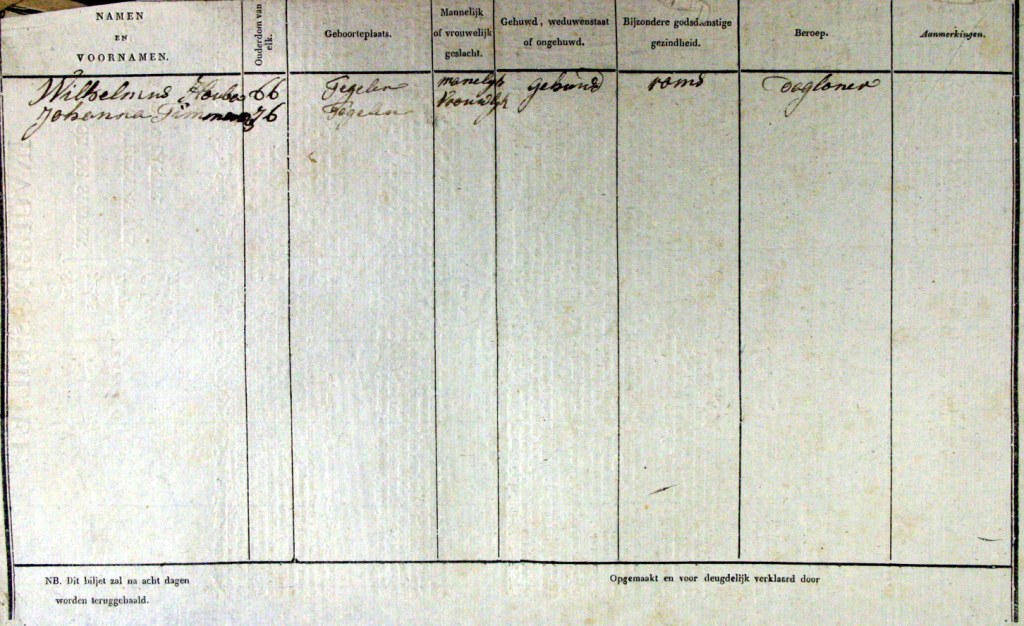 NAMEN EN VOORNAMEN.
Ouderdom van elk.
Geboorteplaats.
Mannelijk of vrouwelijk geslacht.
Gehuwd, weduwenstaat of ongehuwd.
Bijzondere godsdienstige gezindheid.
Beroep.
Aanmerkingen.
Wilhelmus 66 Tegelen manelyk roms dagloner
Johanna Timmermans 76 Tegelen
NB. Dit biljet zal na acht dagen
worden teruggehaald.
Opgemaakt en voor deugdelijk verklaard door